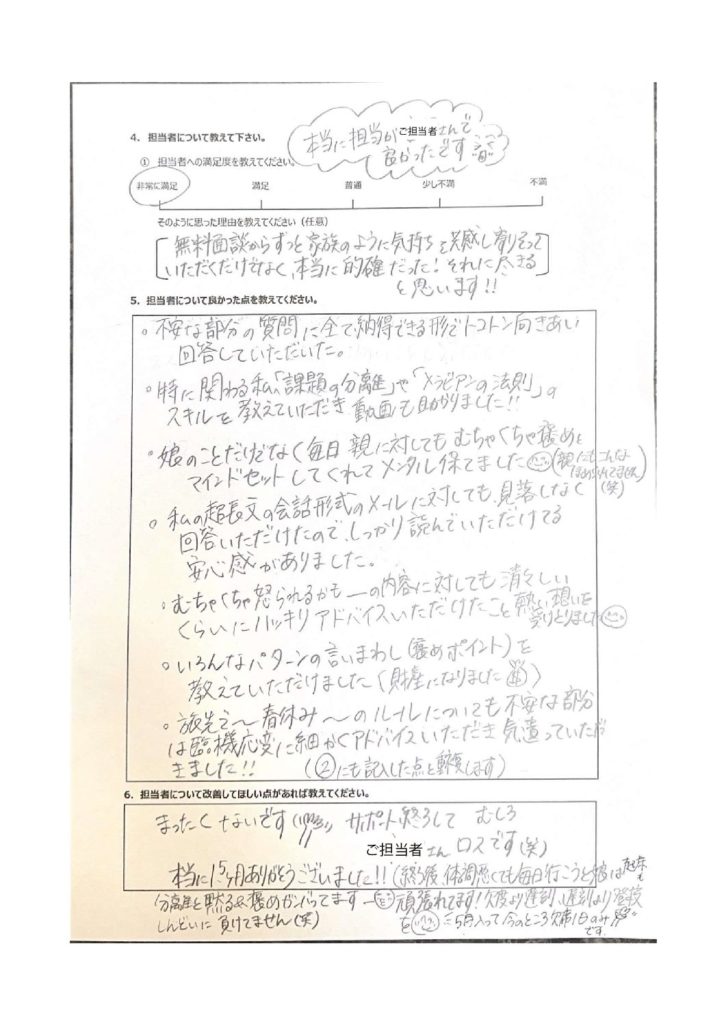 4. 担当者について教えて下さい。
本当に担当が ご担当者 さんで
良かったです
① 担当者への満足度を教えてください。
非常に満足 満足 普通 少し不満 不満
そのように思った理由を教えてください（任意）
無料面談からずっと家族のように気持ちを共感し寄りそって
いただくだけでなく、本当に的確だった！それに尽きる
と思います!!
5. 担当者について良かった点を教えてください。
。不安な部分の質問に全て納得できる形でトコトン向きあい
回答していただいた。
・特に関わる私へ「課題の分離」や「メラビアンの法則」の
スキルを教えていただき動画も助かりました!!
・娘のことだけでなく毎日親に対してもむちゃくちゃ褒めと
マインドセットしてくれてメンタル保てました (親にもこんな
ほめられてません
(笑)
。私の超長文の会話形式のメールに対しても、見落しなく
回答いただけたので、しっかり読んでいただけてる
安心感がありました。
・むちゃくちゃ怒られるかも…の内容に対しても清々しい
くらいにハッキリアドバイスいただけたこと熱い想いを
受けとりました
。いろんなパターンの言いまわし(褒めポイント)を
教えていただけました(財産になりました)
。旅先で〜春休み〜のルールについても不安な部分
は臨機応変に細かくアドバイスいただき気遣っていただ
きました!! (②にも記入した点と重複します)
6. 担当者について改善してほしい点があれば教えてください。
まったくないです サポート終了して むしろ
ご担当者 さん ロスです(笑)
本当に1.5ヶ月ありがとうございました!! (終了後、体調悪くても毎日行こうと娘は
分離と黙る&褒めガンバってます 頑張れてます！欠席より遅刻、遅刻より登校
しんどいに負けてません(笑) を 5月入って今のところ欠席1日のみ
です